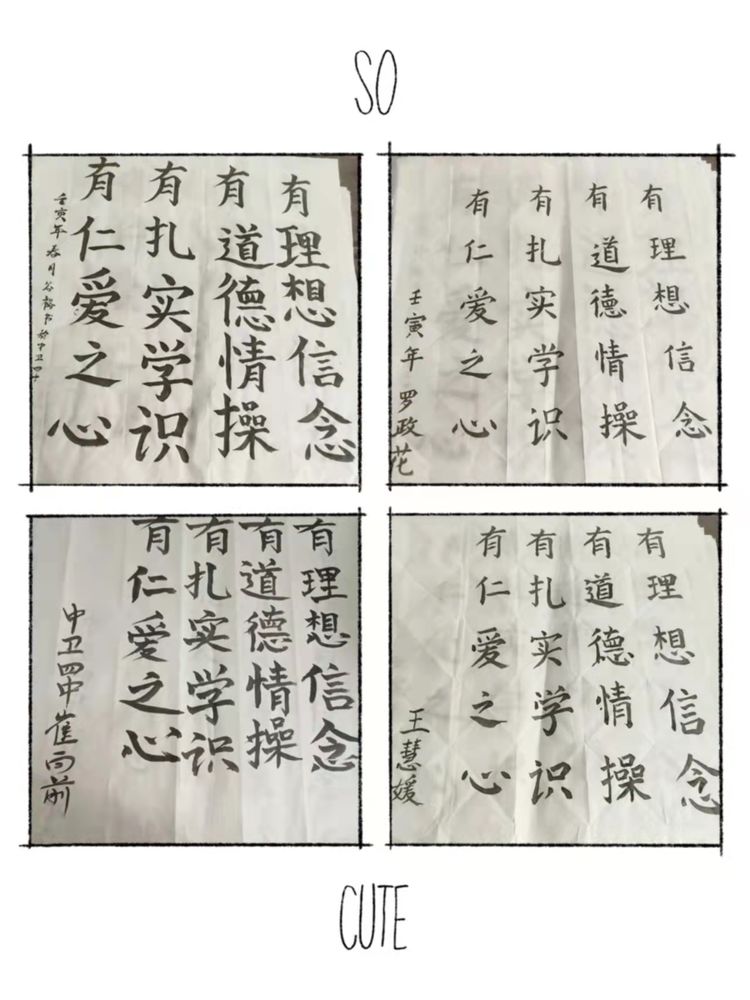 SO
有理想信念
有道德情操
有扎实学识
有仁爱之心
壬寅年春月谷
书于中卫四中
有理想信念
有道德情操
有扎实学识
有仁爱之心
壬寅年 罗政花
有理想信念
有道德情操
有扎实学识
有仁爱之心
中卫四中 崔向前
有理想信念
有道德情操
有扎实学识
有仁爱之心
王慧媛
CUTE